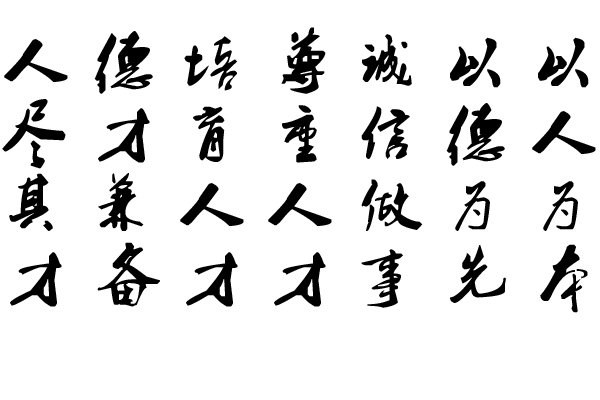 以人为本
以德为先
诚信做事
尊重人才
培育人才
德才兼备
人尽其才